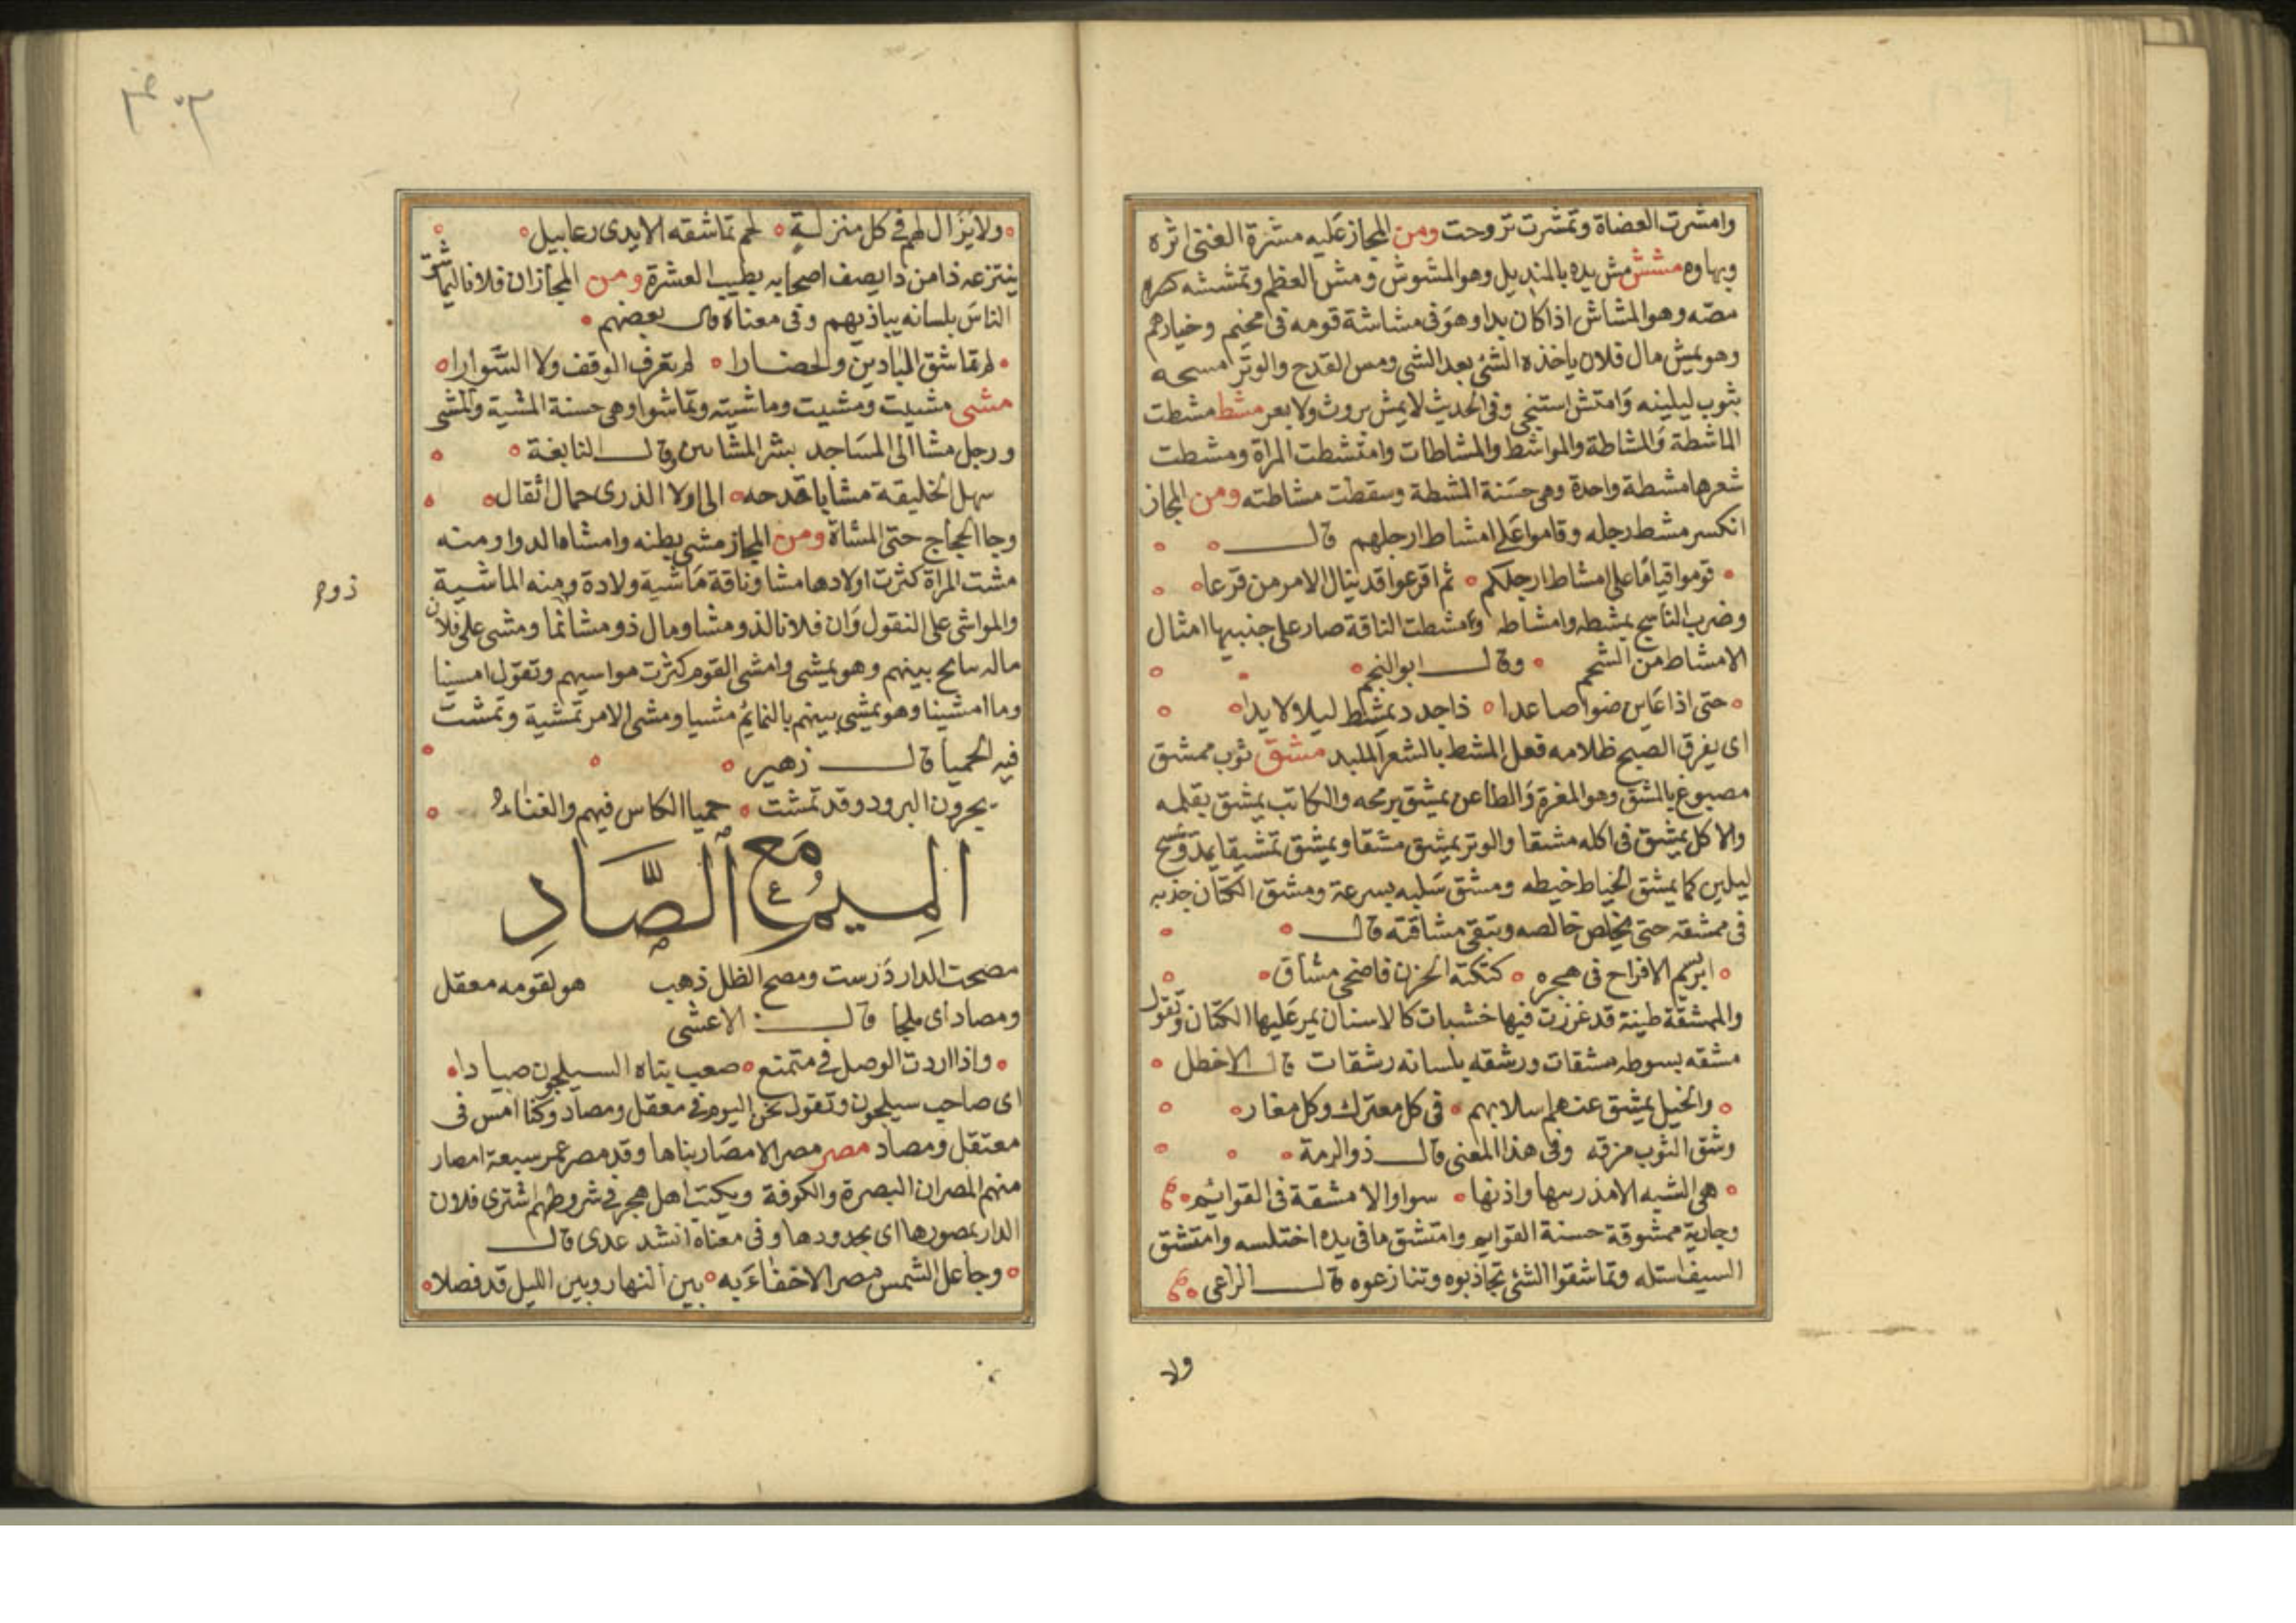 وامشرت العضاة وتمشرت تروحت ومن المجاز عليه مشرة الغنى اثره
وبهاوه مشش مش يده بالمنديل وهو المشوش ومش العظم وتمششه
مصّه وهو المشاش اذا كان بدا وهو فى مشاشة قومه فى مخيم وخيارهم
وهو يمش مال فلان ياخذه الشئ بعد الشى ومس القدح والوتر مسحه
بثوب ليلينه وامتش استنجى وفى الحديث لا يمش بروث ولا بعر مشط مشطت
الماشطة والمشاطة والمواشط والمشاطات وامتشطت المراة ومشطت
شعرها مشطة واحدة وهى حسنة المشطة وسقطت مشاطته ومن المجاز
انكسر مشط رجله وقاموا على امشاط ارجلهم قال
قوموا قياما على امشاط ارجلكم ثم اقرعوا قد ينال الامر من قرعا
وضرب الناسج بمشطه وامشاطه وامشطت الناقة صار على جنبيها امثال
الامشاط من الشحم وقال ابو النجم
حتى اذا عاين ضوا صاعدا ذا جدد يمشط ليلا لابدا
اى يفرق الصبح ظلامه فعل المشط بالشعر الملبد مشق ثوب ممشق
مصبوغ بالمشق وهو المغرة والطاعن يمشق برمحه والكاتب يمشق بقلمه
والاكل يمشق فى اكله مشقا والوتر يمشق مشقا ويمشق تمشيقا يمد ويمسح
ليلين كما يمشق الخياط خيطه ومشق سلبه بسرعة ومشق الكتان جذبه
فى ممشقته حتى يخلص خالصه وتبقى مشاقته قال
ابرسيم الافراح فى هجره كتكتة الحزن فاضحى مشاق
والممشقة طينة قد غرزت فيها خشبات كالاسنان يمر عليها الكتان وتقول
مشقه بسوطه مشقات ورشقه بلسانه رشقات قال الاخطل
والخيل يمشق عنهم اسلابهم فى كل معترك وكل مغار
وشق الثوب مزقه وفى هذا المعنى قال ذو الرمة
هى الشبه الا مذريها واذنها سوا والا مشقة فى القوائم
وجارية ممشوقة حسنة القوايم وامتشق ما فى يده اختلسه وامتشق
السيف استله وتماشقوا الشئ تجاذبوه وتنازعوه قال الراعى
ولا
ولا يزال لهم فى كل منزلة لحم تماشقه الايدى رعابيل
ينتزعه ذا من ذا يصف اصحابه بطيب العشرة ومن المجاز ان فلانا ليماشق
الناس بلسانه يباذيهم وفى معناه قال بعضهم
لم تماشق المبادين والحضارا لم تعرف الوقف ولا السوارا
مشى مشيت ومشيت وماشيته وتماشوا وهى حسنة المشية والمشى
ورجل مشا الى المساجد بشر المشاين قال النابغة
سهل الخليقة مشا باقدحه الى اولا الذرى حمال اثقال
وجا الحجاج حتى المشاة ومن المجاز مشى بطنه وامشاه الدوا ومنه
مشت المراة كثرت اولادها مشا وناقة ماشية ولادة ومنه الماشية
ذوم
والمواشى على التفول وان فلانا لذو مشا ومال ذو مشا نما ومشى على فلان
ماله سانح بينهم وهو يمشى وامشى القوم كثرت مواسيهم وتقول امسينا
وما امشينا وهو يمشى بينهم بالنمايم مشيا ومشى الامر تمشية وتمشت
فيه الحميا قال زهير
يجرون البرود وقد تمشت حميا الكاس فيهم والغناء
الميم مع الصاد
مصحت الدار درست ومصح الظل ذهب هو لقومه معقل
ومصاد اى ملجا قال الاعشى
واذا اردت الوصل فى متمنع صعب بناه السيلحون مصادا
اى صاحب سيلحون وتقول نحن اليوم فى معقل ومصاد وكنا امس فى
معتقل ومصاد مصر مصر الامصار بناها وقد مصر عمر سبعة امصار
منهم المصران البصرة والكوفة ويكتب اهل هجر فى شروطهم اشترى فلان
الدار بمصورها اى بحدودها وفى معناه انشد عدى قال
وجاعل الشمس مصرا لا خفاء به بين النهار وبين الليل قد فصلا